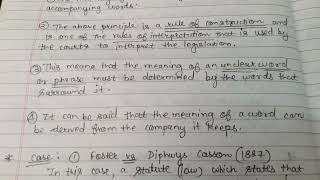 accompanying words.
② The above principle is a rule of construction and
is one of the rules of interpretation that is used by
the courts to interpret the legislation.
③ This means that the meaning of an unclear word
or phrase must be determined by the words that
surround it.
④ It can be said that the meaning of a word can
be derived from the company it keeps.
* Case: ① Foster vs Diphwys Casson (1887)
"In this case, a statute (law) which states that